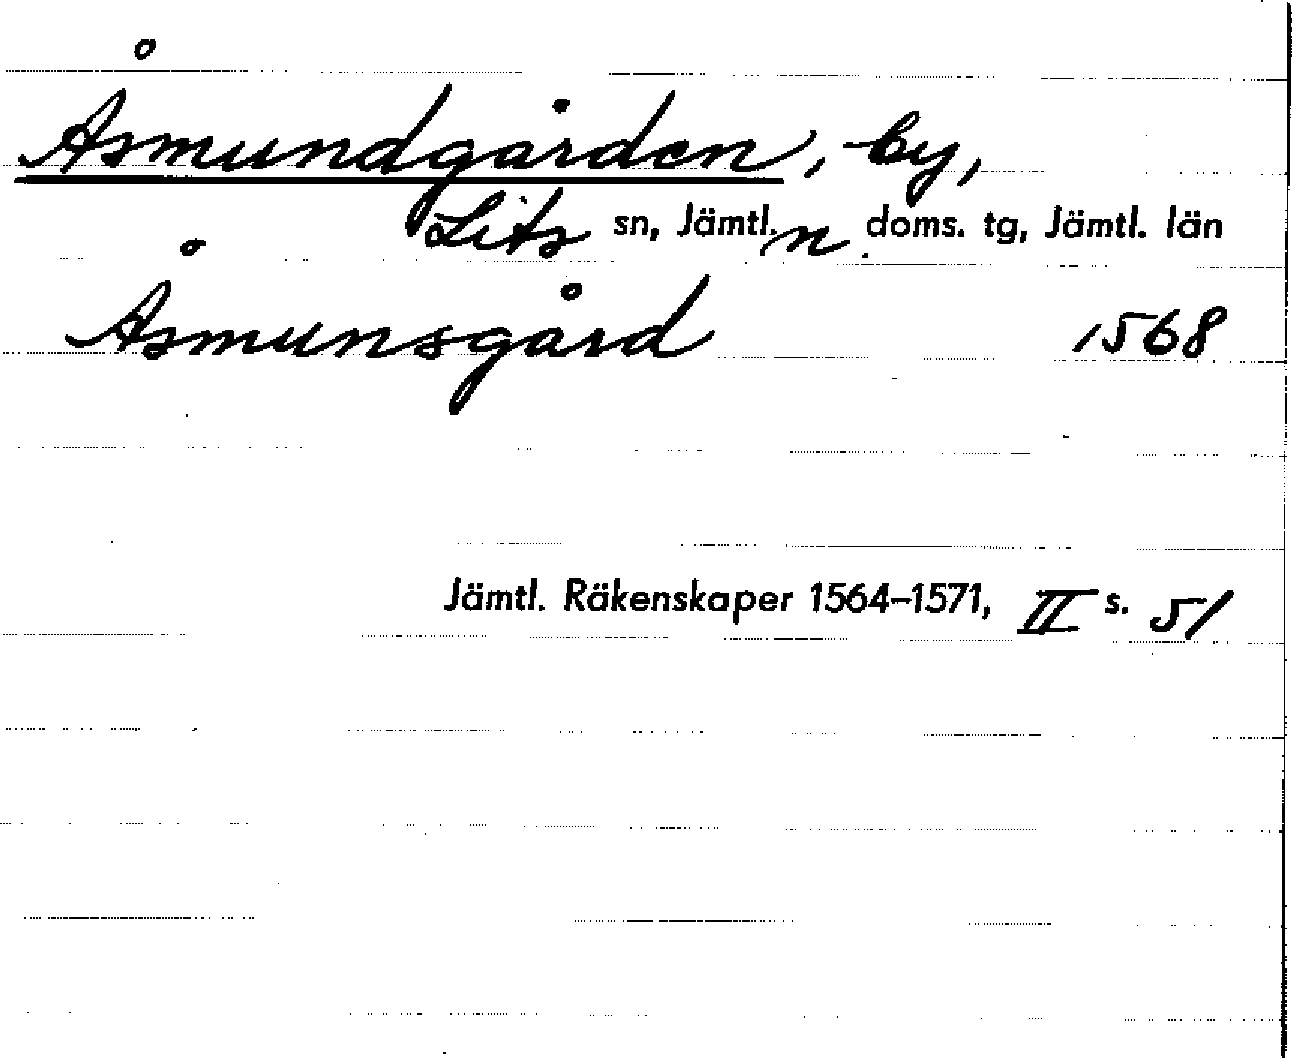 Åsmundgården, by,
Lits sn, Jämtl. n. doms. tg, Jämtl. län
Åsmunsgård 1568
Jämtl. Räkenskaper 1564–1571, II s. 51